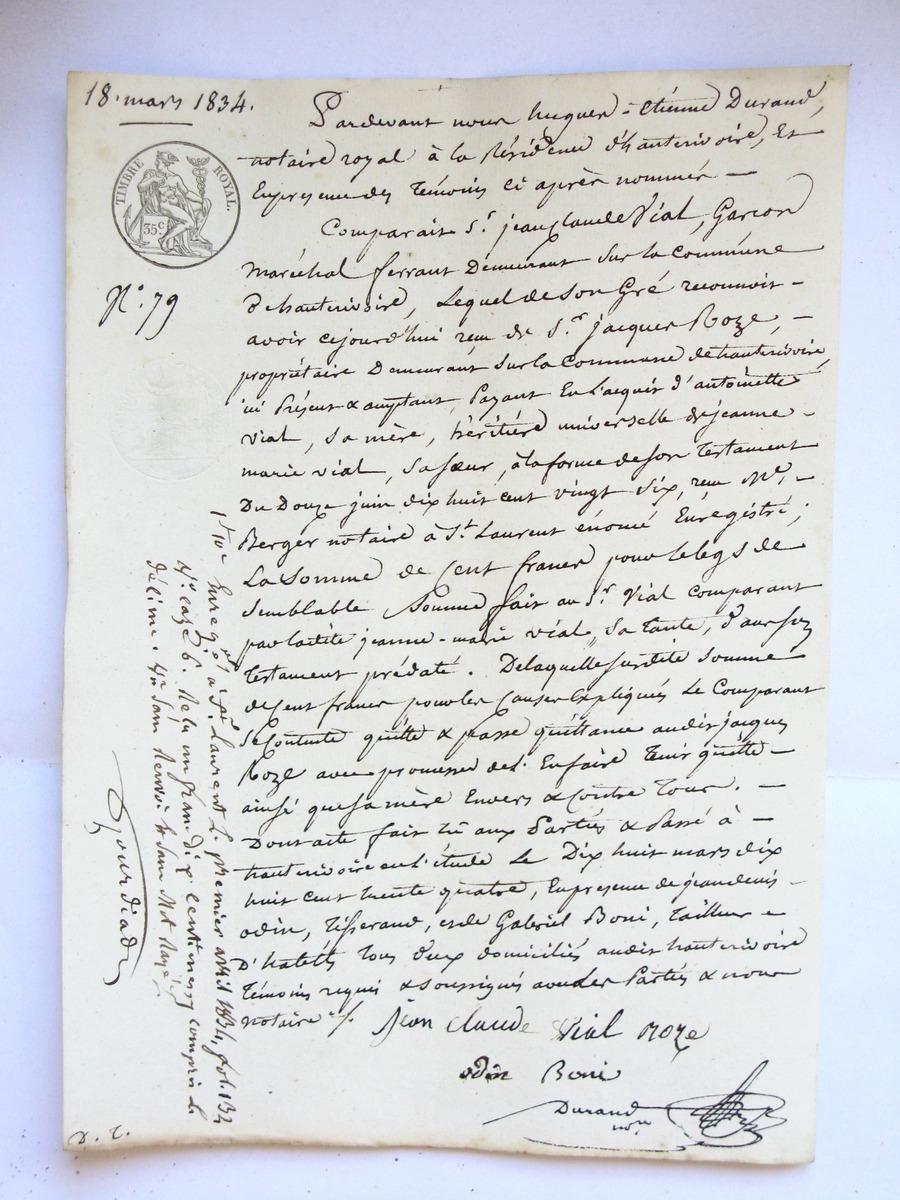 18. mars 1834.
TIMBRE ROYAL.
35c.
N°. 79
Pardevant nous hugues-étienne Durand,
notaire royal à la Résidence d'hauterivoire, Et
En presence des Témoins ci après nommés —
Comparait Sr. jean claude Vial, Garçon
Maréchal ferrant Demeurant Sur la Commune
d'hauterivoire, Lequel de Son Gré reconnoit —
avoir cejourd'hui reçu de Sr. jacques Roze, —
propriétaire Demeurant Sur la Commune de hauterivoire,
ici Présent & acceptant, Payant En l'acquit d'antoinette
Vial, Sa mère, héritière universelle de jeanne —
marie vial, Sa sœur, à la forme de Son Testament
Du Douze juin dix huit cent vingt Six, reçu Me. —
Berger notaire à St. Laurent énoncé Enregistré;
La Somme de Cent francs pour le legs de
Semblable Somme fait au Sr. Vial Comparant
par ladite jeanne-marie vial, Sa tante, Testament prédaté. De laquelle Susdite Somme
de Cent francs pour les Causes Expliquées Le Comparant
Se Contente quitte & passe quittance audit jacques
Roze avec promesse de l'En faire Tenir quitte —
ainsi que Sa mère Envers & Contre Tous. —
Dont acte fait lu aux Parties & Passé à —
hauterivoire en l'étude Le Dix huit mars dix
huit cent trente quatre, En presence de jean denis —
odin, Tisserand, et de Gabriel Boni, Tailleur —
D'habits Tous Deux domiciliés audit hauterivoire
Témoins requis & Soussignés avec les Parties & nous
notaire ./.
jean claude Vial Roze
odin Boni
Durand
nore
Enregé. à St. Laurent le premier avril 1834, fol. 132
Vo. Cases 6. Reçu un franc dix centimes y compris le
décime. Sans Renvoi & Sans Mot Rayé
Gourdiad
D. T.